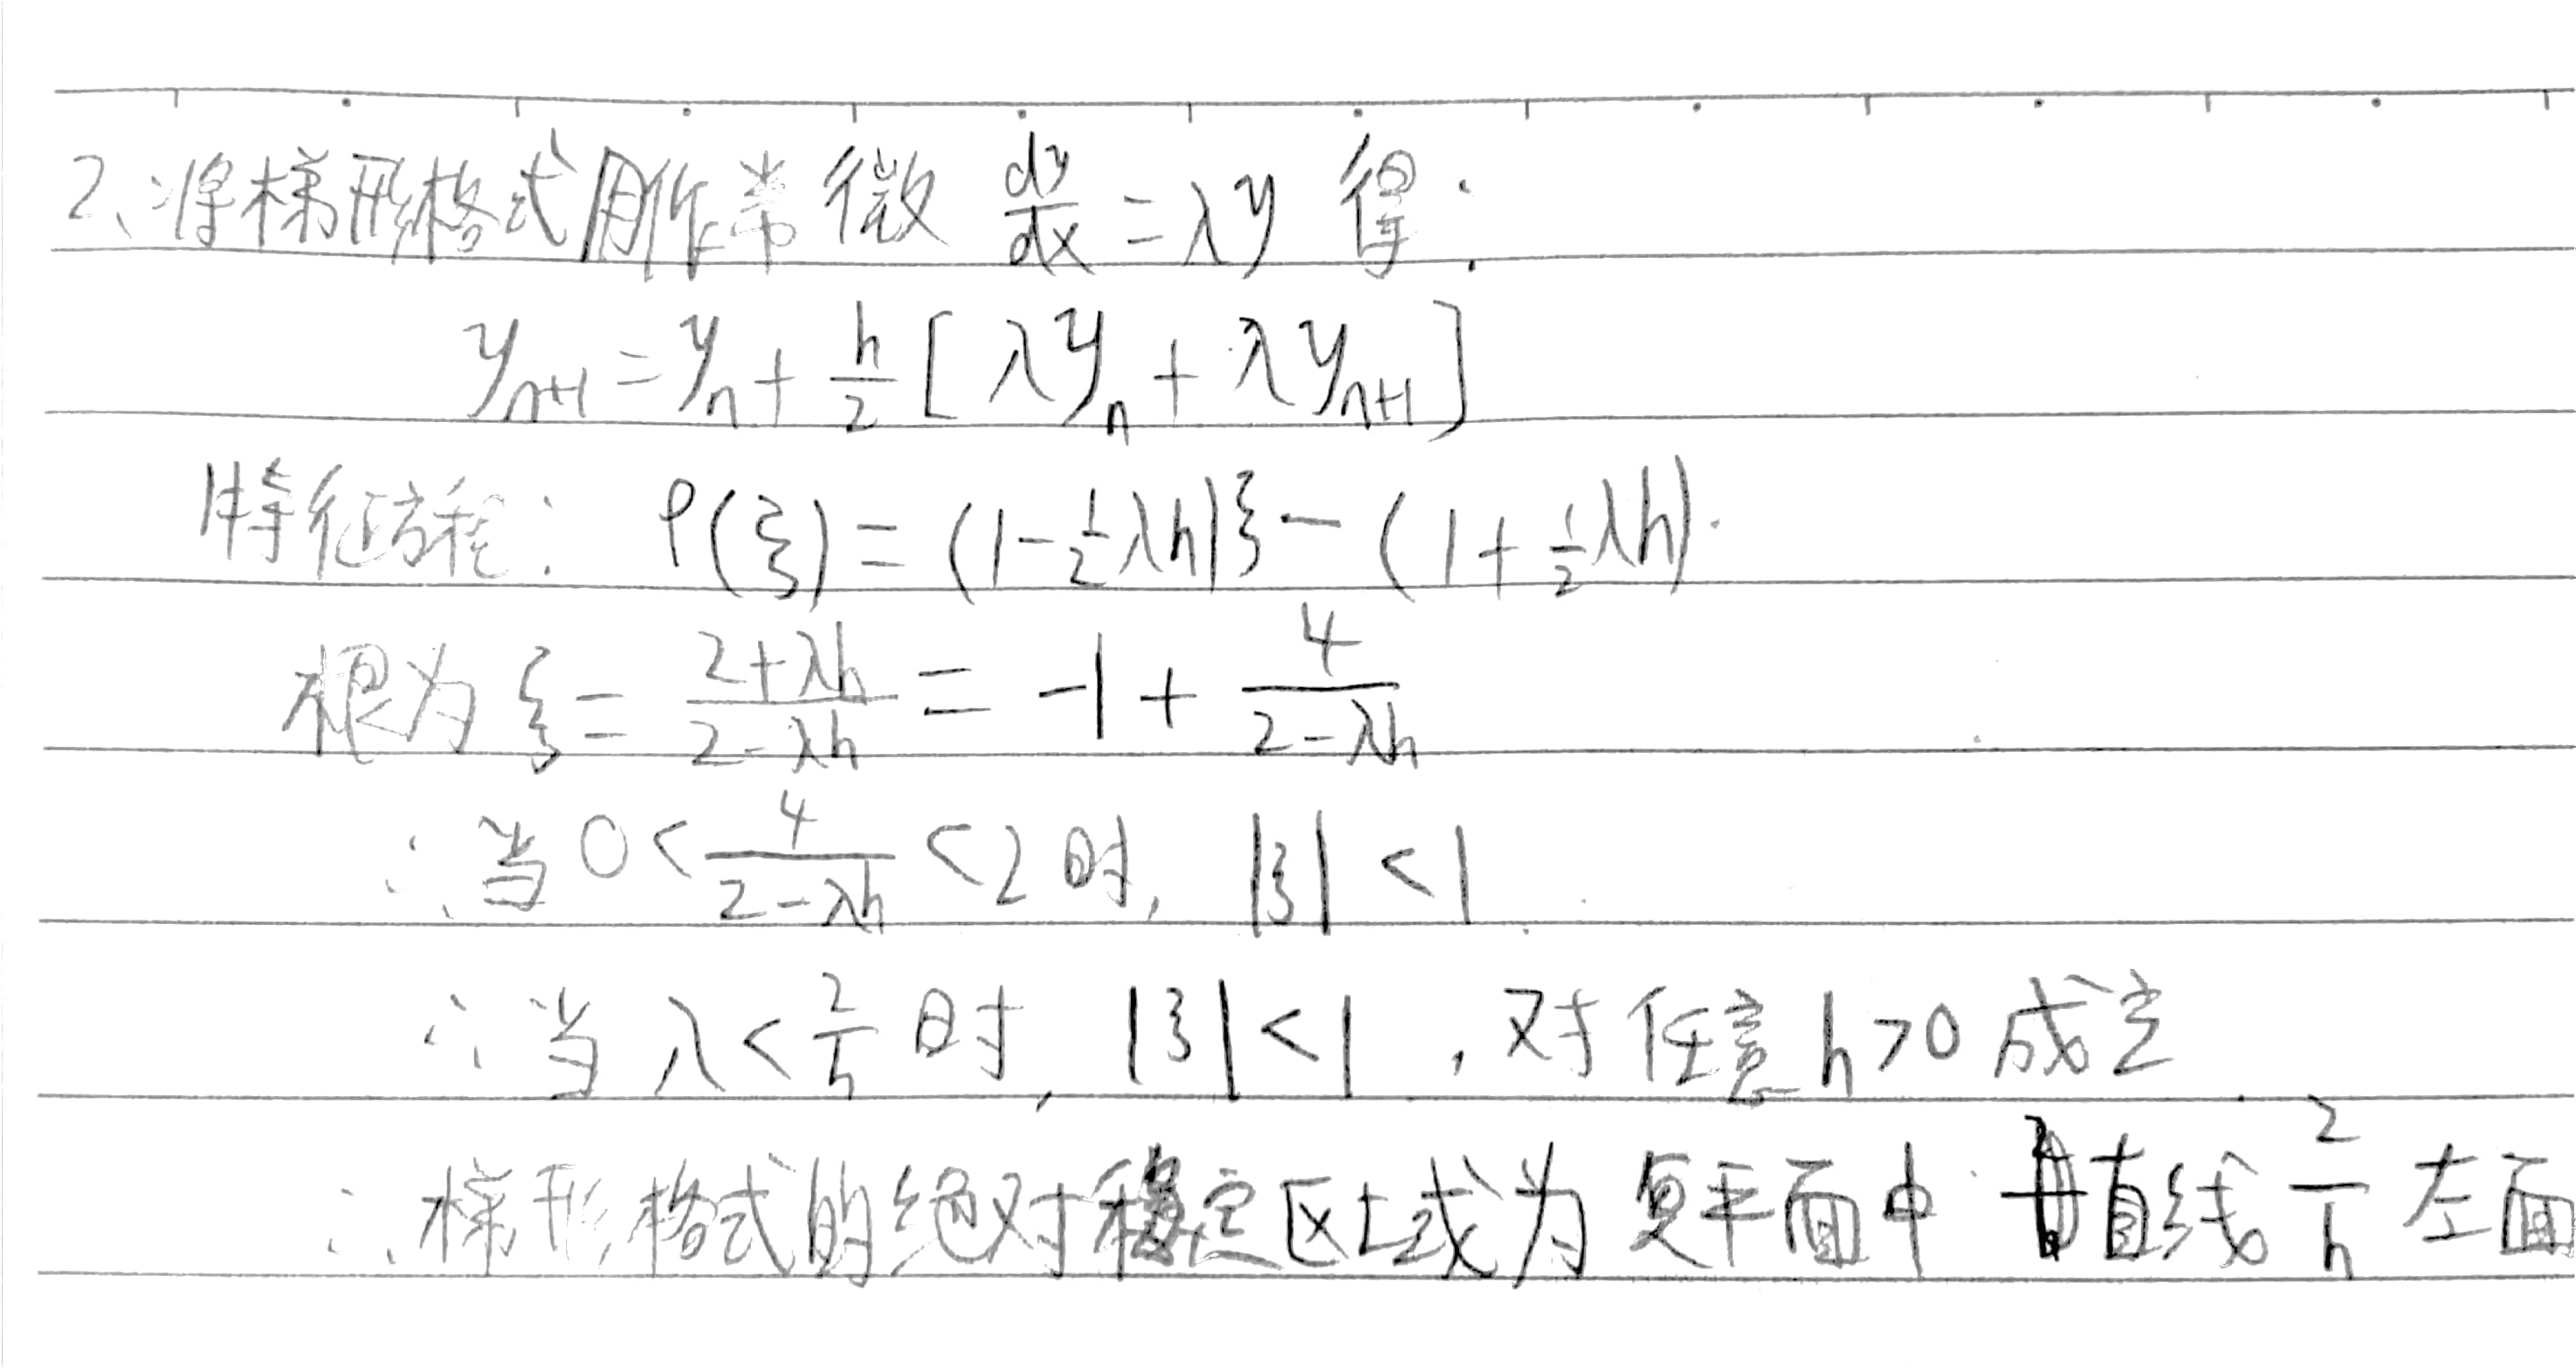 2、将梯形格式用作常微 dy/dx = λy 得:
y_{n+1} = y_n + h/2 [ λy_n + λy_{n+1} ]
特征方程: ρ(ξ) = (1 - 1/2 λh)ξ - (1 + 1/2 λh).
根为 ξ = (2+λh)/(2-λh) = -1 + 4/(2-λh)
∴当 0 < 4/(2-λh) < 2 时, |ξ| < 1
∴当 λ < 2/h 时, |ξ| < 1 , 对任意 h>0 成立
∴梯形格式的绝对稳定区域为 复平面中 直线 2/h 左面